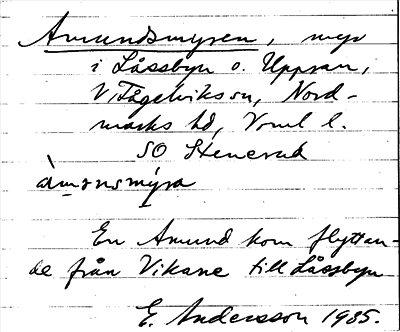 Amundsmyren, myr
i Låssbyn o. Uppsan,
V. Fågelviks sn, Nord-
marks hd, Vrml l.
SO Stenerud
En Amund kom flyttan-
de från Vikane till Låssbyn
E. Andersson 1935.